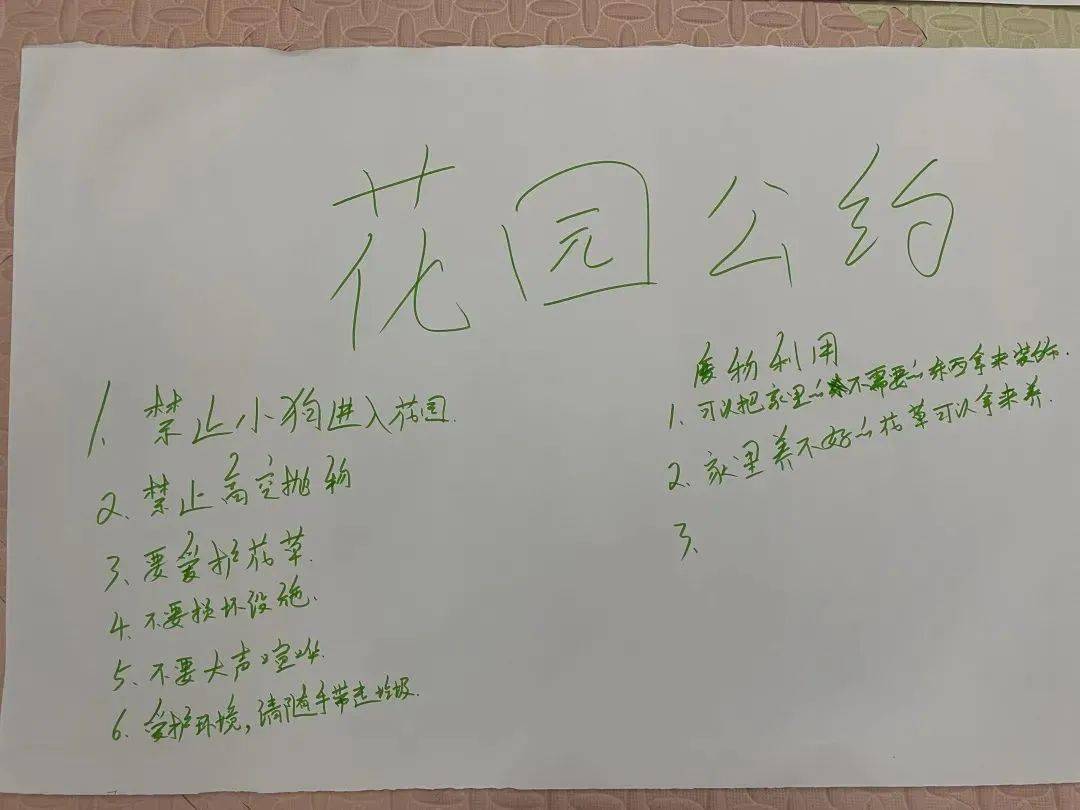 花园公约
1、禁止小狗进入花园.
2、禁止高空抛物
3、要爱护花草.
4、不要损坏设施.
5、不要大声喧哗.
6、爱护环境,请随手带走垃圾.
废物利用
1、可以把家里的不需要的东西拿来装饰.
2、家里养不好的花草可以拿来养.
3、